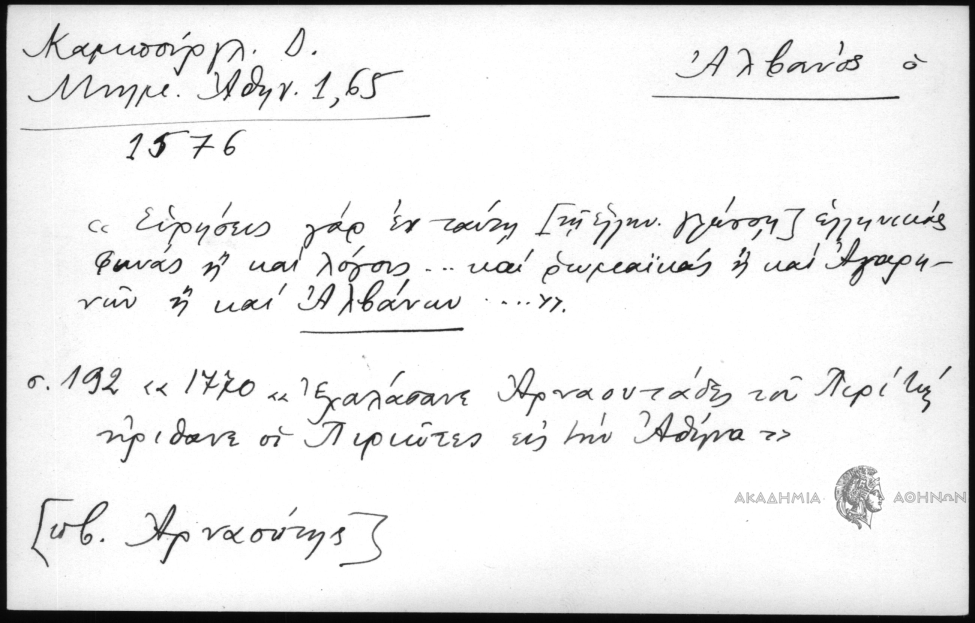 Καμπούρογλ. Δ.
Μνημ. Ἀθην. 1,65
Ἀλβανός ὁ
1576
« Εὑρήσεις γάρ ἐν ταύτῃ [τῇ ἑλλην. γλώσσῃ] ἑλληνικάς
φωνάς ἤ καί λόγους ... καί ῥωμαϊκάς ἤ καί Ἀγαρη-
νῶν ἤ καί Ἀλβάνων ....».
σ. 192 « 1770 « Ἐχαλάσανε Ἀρναουτάδες τοῦ
ἤρθανε οἱ εἰς τήν Ἀθήνα »
[πβ. Ἀρναούτης]
ΑΚΑΔΗΜΙΑ ΑΘΗΝΩΝ